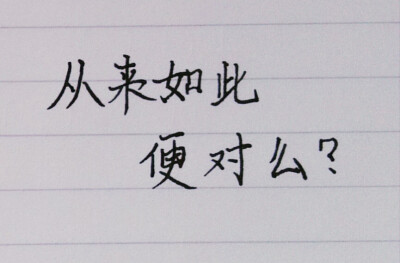 从来如此
便对么?